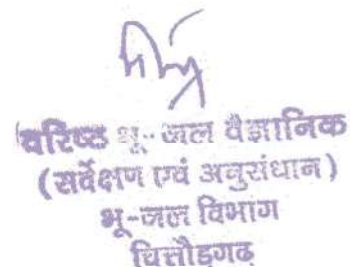 वरिष्ठ भू-जल वैज्ञानिक
(सर्वेक्षण एवं अनुसंधान)
भू-जल विभाग
चित्तौड़गढ़